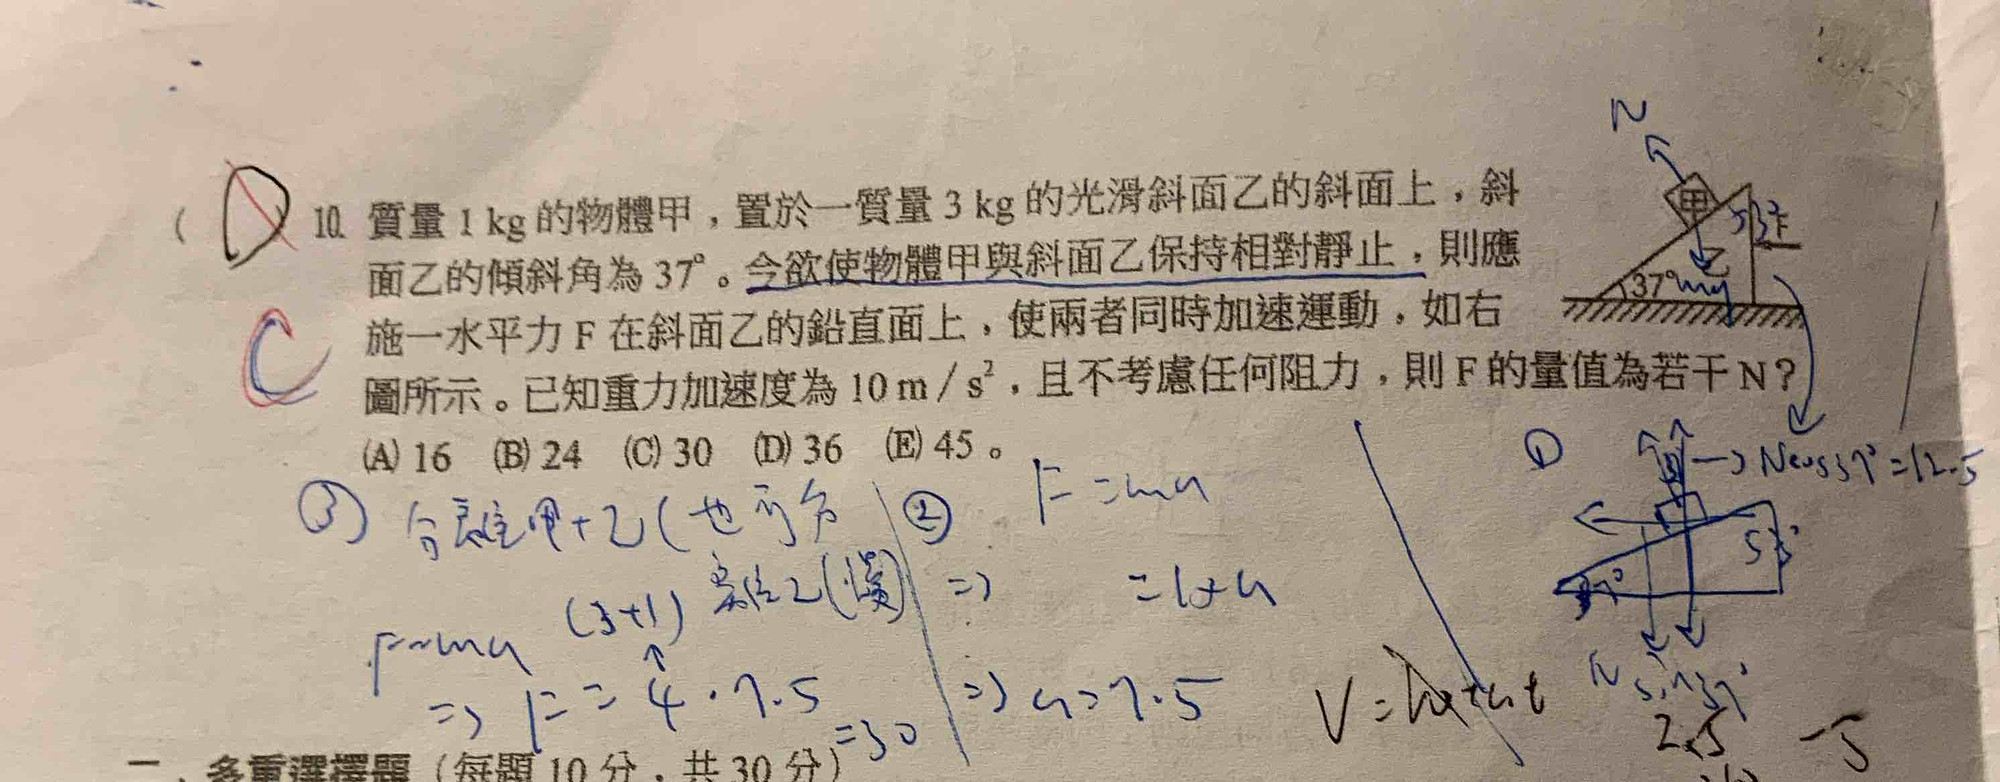 N
(D) 10. 質量 1 kg 的物體甲，置於一質量 3 kg 的光滑斜面乙的斜面上，斜
面乙的傾斜角為 37°。今欲使物體甲與斜面乙保持相對靜止，則應
施一水平力 F 在斜面乙的鉛直面上，使兩者同時加速運動，如右
圖所示。已知重力加速度為 10 m／s²，且不考慮任何阻力，則 F 的量值為若干 N？
(A) 16 (B) 24 (C) 30 (D) 36 (E) 45。
C
甲
53°
F
乙
37°
mg
③ 分離甲+乙(也可分
離乙(慢)
F=ma
(3+1)
↑
⇒ F = 4·7.5
=30
② F=ma
⇒ =1×a
⇒ a=7.5
V=
①
→ Ncos37°
53°
37°
N sin37°
一、多重選擇題（每題 10 分，共 30 分）